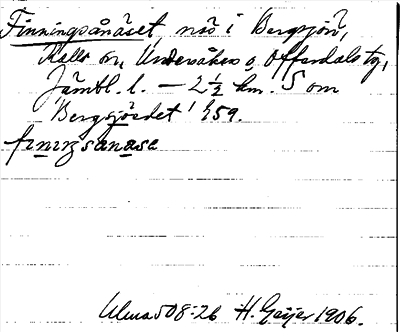 Finningsånäset, näs i Bergsjön,
Kalls sn, Undersåkers o. Offerdals tg,
Jämtl. l. — 2 ½ km. S om
Bergsjöedet 1/2 59.
finiŋsånäse
Ulma 508:26 H. Geijer 1906.